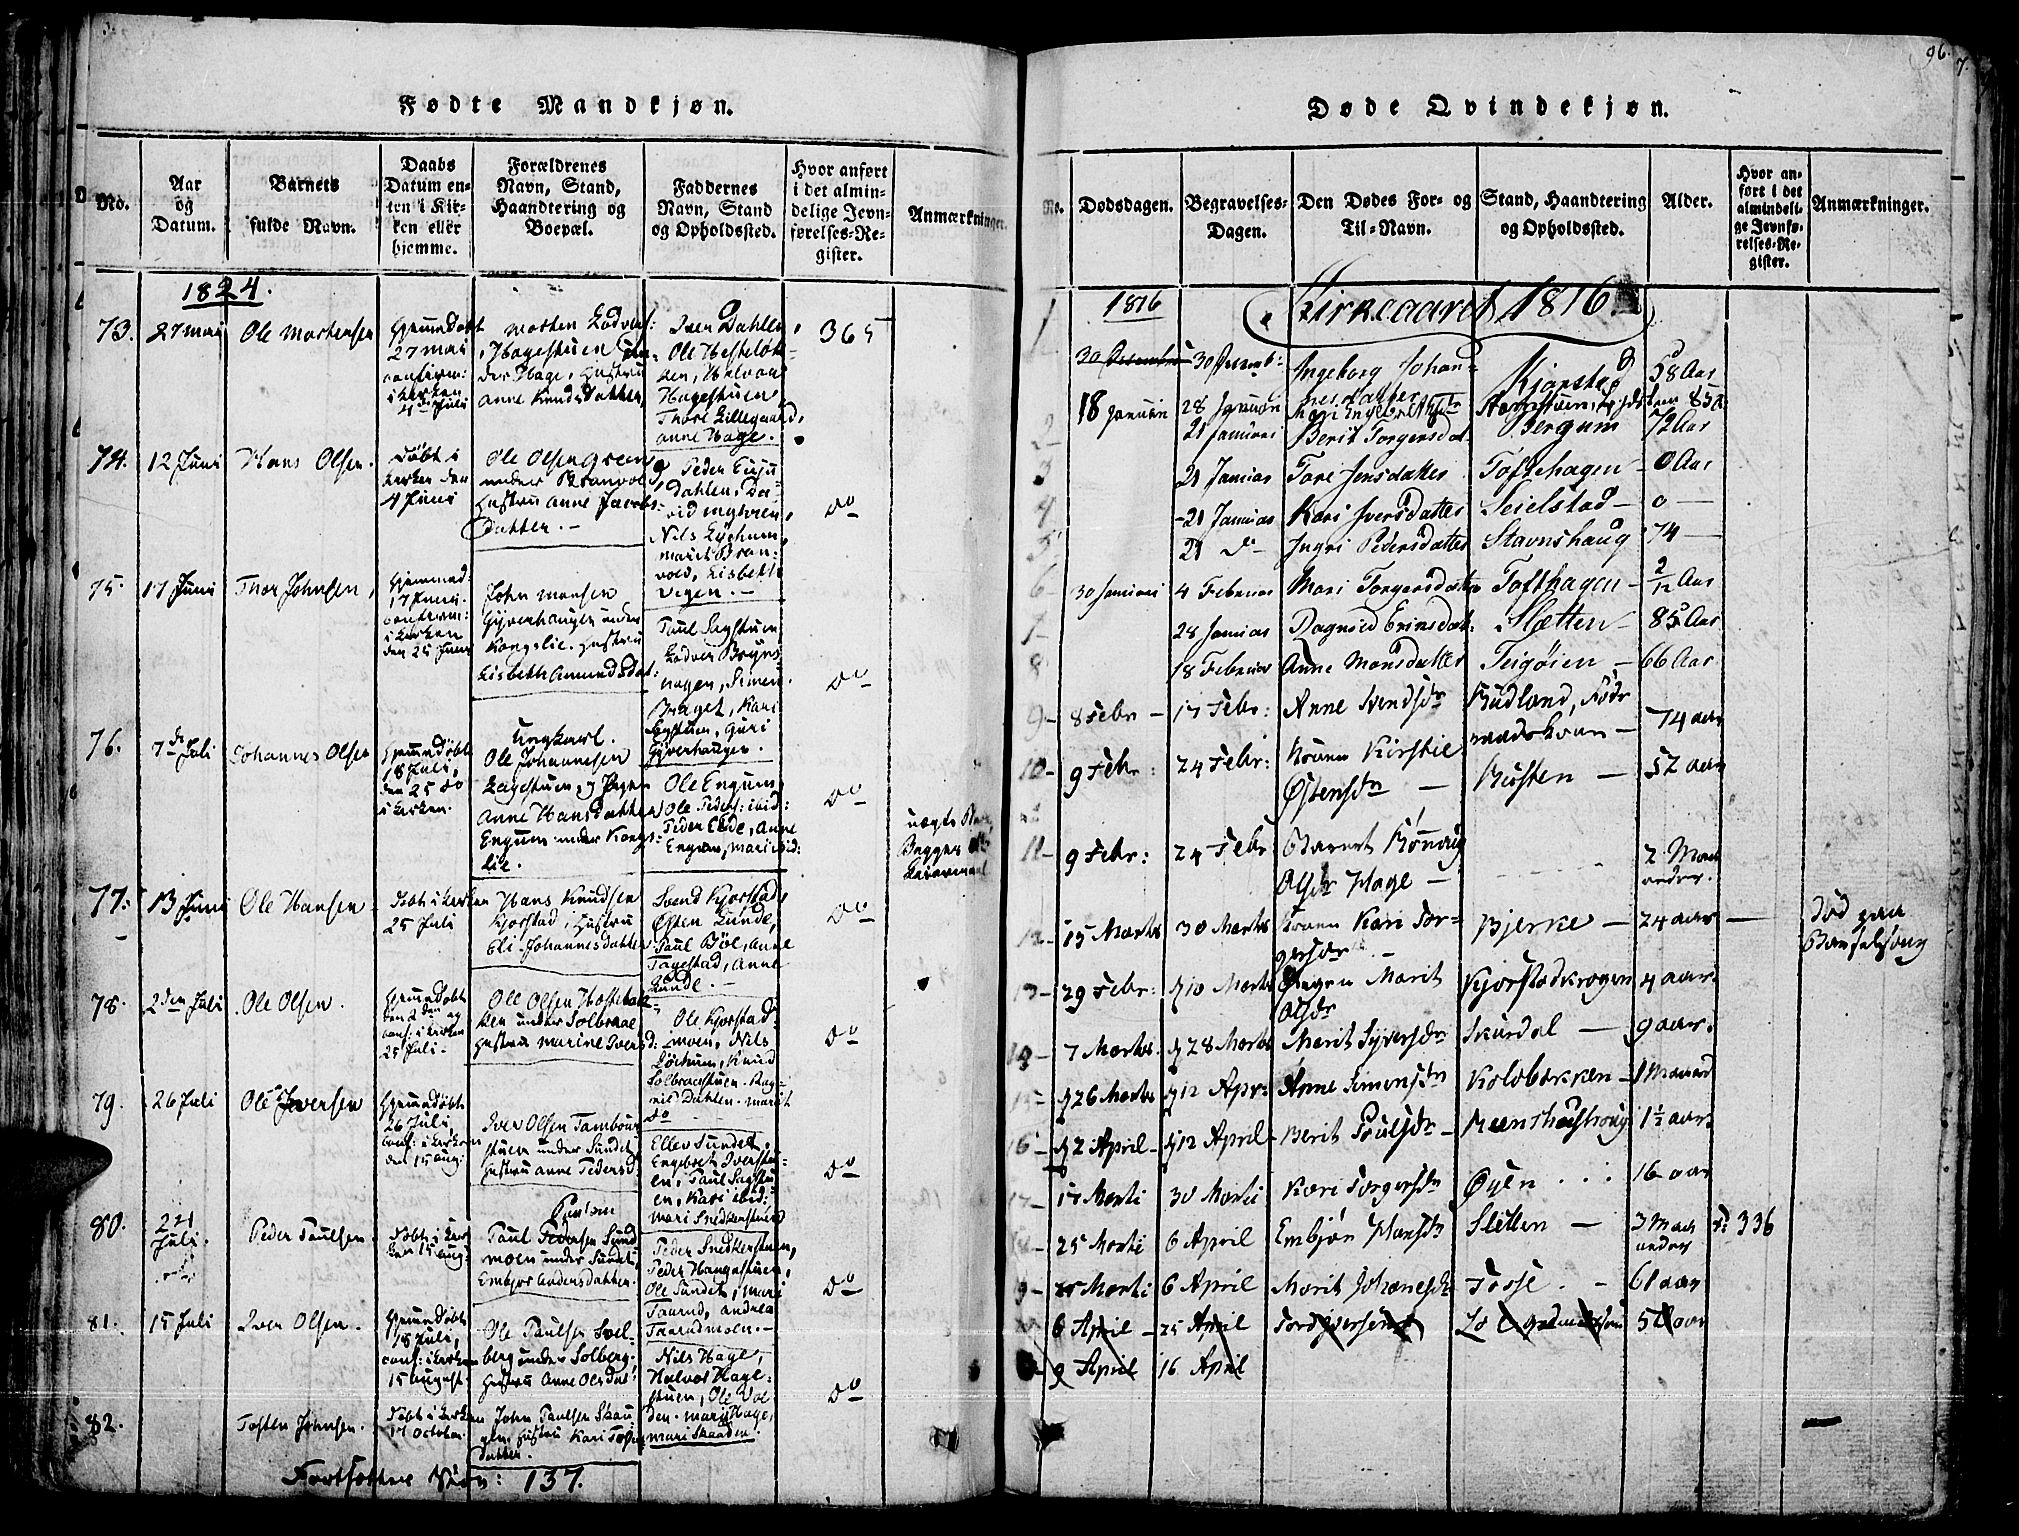 96.
7.
Fødte Mandkjøn.
No.
Aar og Datum.
Barnets fulde Navn.
Daabs Datum enten i Kirken eller hjemme.
Forældrenes Navn, Stand, Haandtering og Boepæl.
Faddernes Navn, Stand og Opholdssted.
Hvor anført i det almindelige Jevnførelses-Register.
Anmærkninger.
1824.
73. 27 Mai Ole Mortensen
Hjemmedøbt
27 Mai
confirm:
i kirken
4de Juli
Morten Lodves:
Hagestuen un-
der Hage, Hustru
Anne Knudsdatter,
Iver Dahlen,
Ole Hesteløk-
ken, Halvor
Hagestuen
Thore Lillegaard,
Anne Hage.
365
74. 12 Juni Hans Olsen.
Døbt i
kirken den
4 Juni
Ole Olsen
under Branvold
Hustru Anne Jacobs-
datter.
Peder
Dahlen,
Nils
Marit Bran-
vold, Lisbeth
Vegen.
do
75. 17 Juni Thor Johnsen,
Hjemmed:
17 Juni.
confirm:
i kirken
den 25 Juni
John Monsen
Gyverhaugen under
Kongslie. Hustru
Lisbeth Amundsdat:
Paul Sagstuen
Lodven Bryns-
hagen, Simen
Braget, Kari
Sagstuen, Guri
Gyverhaugen.
do
76. 7de Juli Johannes Olsen
Hjemmedøbt
18 Juli,
den 25 do
i kirken.
Ungkarl.
Ole Johannesen
Lagestuen, og Pigen
Anne Hansdatter
Engum under Kongs-
lie.
Ole Engum,
Ole Peders: ibid:
Peder Eide, Anne
Engum, Mari ibid:
do
77. 13 Juni Ole Hansen
Døbt i kirken
25 Juli
Hans Knudsen
Kjorstad, Hustru
Eli Johannesdatter
Svend Kjorstad,
Østen Lunde,
Paul Bøe, Anne
Tagestad, Anne
Lunde.
do
78. 2den Juli Ole Olsen.
Hjemmedøbt
den 2den og
conf: i kirken
25 Juli.
Ole Olsen Hesteløk-
ken under Solbraae
Hustru Marine Iversd:
Ole Kjorstad-
moen, Nils
Lørhum, Knud
Solbraastuen. Rag-
nil Dahlen. Marit
do
do
79. 26 Juli Ole Iversen
Hjemmedøbt
26 Juli,
conf: i kirken
den 15 Aug:
Iver Olsen Tambour
stuen under Sundet
Hustru Anne Pedersd.
Ellev Sundet,
Engebret Iverstu-
en, Paul Sagstu-
en, Kari ibid:
Mari Snedkerstuen
do
80. 221 Juli. Peder Paulsen.
Døbt i kir-
ken 15 Aug:
Paul Pedersen Sund-
moen under Sundet,
Embjør Andersdatter.
Peder Snedkerstuen,
Peder Haugestuen,
Ole Sundet, Mari
Taarud, Andrea
Taarudmoen.
do
81. 15 Juli Iver Olsen.
Hjemmedøbt
18 Juli,
conf: i kirken
15 August.
Ole Paulsen Svel-
berg under Solberg.
Hustru Anne Olsdat:
Nils Hage,
Halvor Hage-
stuen, Ole Vol
den. Mari Hage,
Mari Skaaden.
do
82. Tosten Johnsen.
Døbt i kirken
17 October.
John Paulsen Skau-
gen, Hustru Kari
datter.
Fortsættes Side: 137.
Døde Qvindekjøn.
No.
Dødsdagen.
Begravelses-Dagen.
Den Dødes For- og Til-Navn.
Stand, Haandtering og Opholdssted.
Alder.
Hvor anført i det almindelige Jevnførelses-Register.
Anmærkninger.
1816 Kirkeaaret 1816
1 30 December 30 Decemb: Ingeborg Johan-
nesdatter Kjørstad 58 Aar
18 Januari 28 Januari Mari
2 21 Januari Berit Torgersdat. Bergum 72 Aar
3 21 Januar Tore Jensdatter Toftehagen 0 Aar
4 21 Januar Kari Iversdatter Seielstad 0
5 21 do Ingri Pedersdatter Stavnshaug 74
6 30 Januari 4 Februar Mari Torgersdatter Tofthagen 2/12 Aar
7 28 Januar Ragnild Erinsdat: Sletten 85 Aar
8 18 Februar Anne Monsdatter Teigøien 66 Aar
9 8 Febr 17 Febr: Anne Svendsdr Rudland, Føde
raadskone 74 aar
10 9 Febr: 24 Febr: Konen Kirstie
Østensdr Rusten 52 aar
11 9 Febr: 24 Febr Barnet Rønnog
Olsdr Hage 2 Maaneder.
12 15 Martii 30 Martii Konen Kari Tor-
gersdr Bjerke 24 aar
Død paa
Barselseng
13 29 Febr: 10 Martii Pigen Marit
Olsdr Kjorstadkrogen 4 aar
14 7 Martii 28 Martii Marit Syversdr Skurdal 9 aar.
15 26 Martii 12 Apr: Anne Simensdr Kolobækken 1 Maaned
16 2 April 12 April Berit Poulsdr 1½ aar
17 17 Marti 30 Marti Kari Torgersdr Øyen 16 aar
25 Marti 6 April Embjør Hansdr Sletten 3 Maaneder 336
25 Marti 6 April Marit Johanesdr Fosse 61 aar
6 April 25 April
9 April 16 April